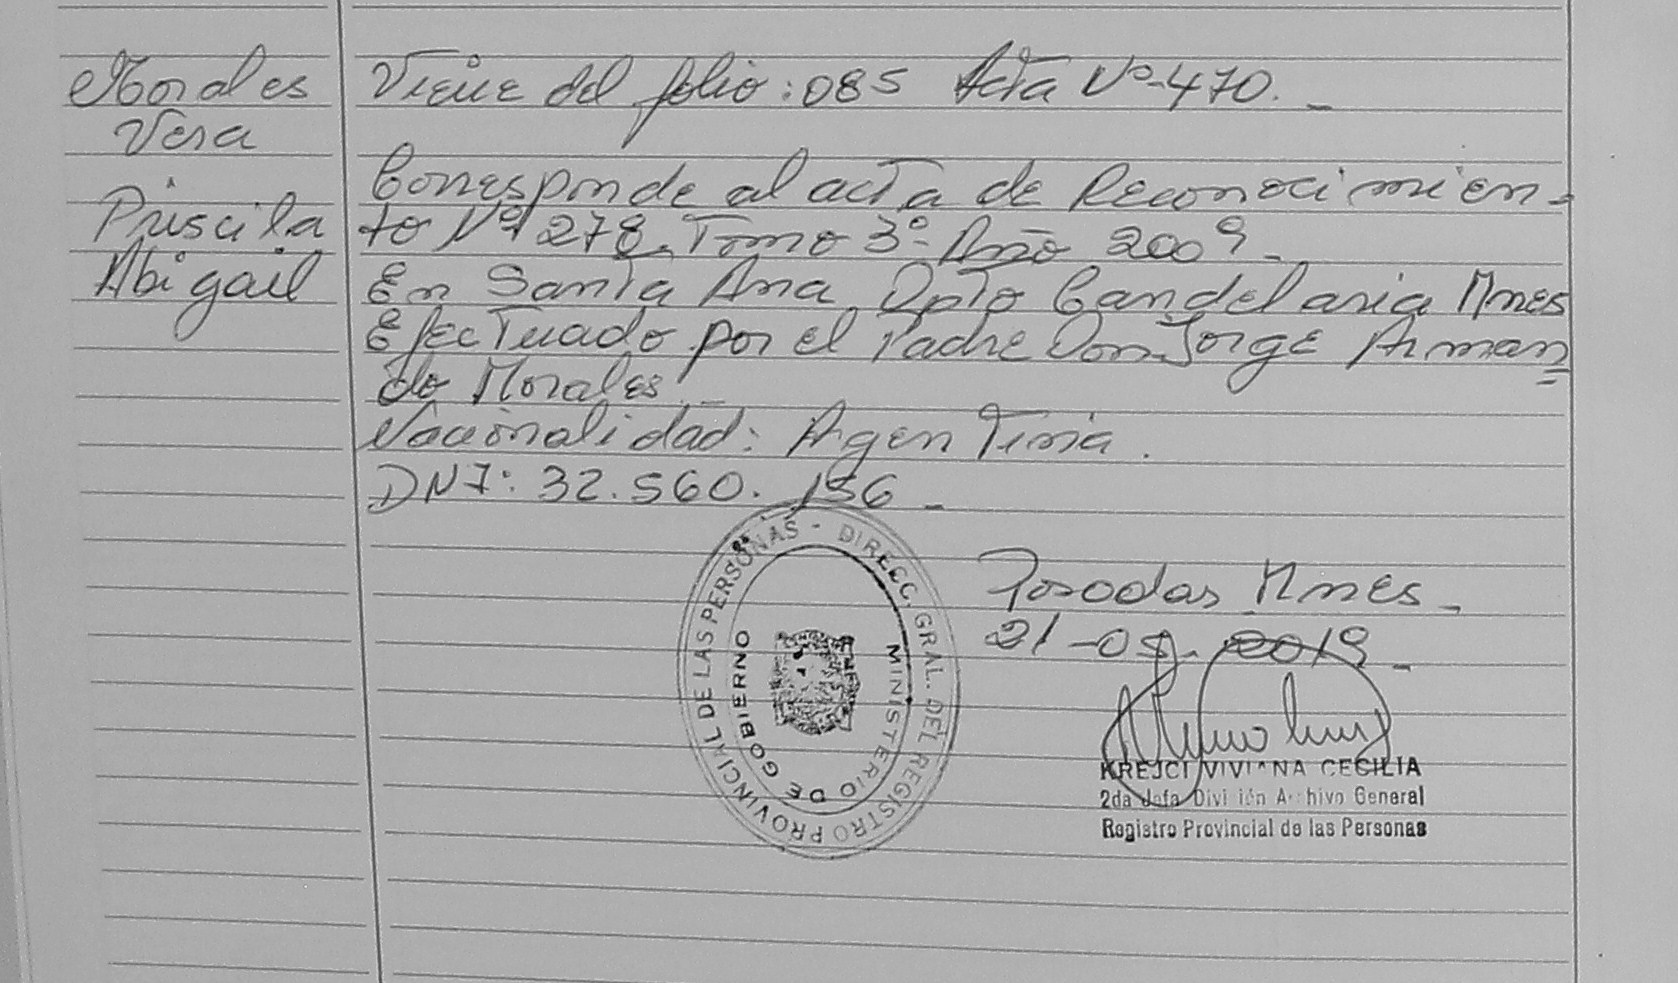 Morales
Vera
Priscila
Abigail
Viene del folio: 085 Acta Nº 470. _
Corresponde al acta de Reconocimien-
to Nº 278. Tomo 3º- Año 2009 -
En Santa Ana Dpto Candelaria Mnes
Efectuado por el Padre Don Jorge Arman=
do Morales. _
Nacionalidad: Argentina.
DNI: 32.560.156 _
Posadas Mnes _
21-09-2019. _
DIRECC. GRAL. DEL REGISTRO PROVINCIAL DE LAS PERSONAS -
MINISTERIO DE GOBIERNO
KREJCI VIVIANA CECILIA
2da Jefa División Archivo General
Registro Provincial de las Personas